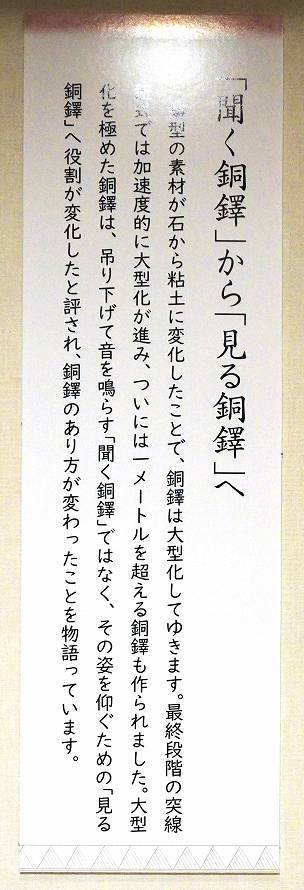 「聞く銅鐸」から「見る銅鐸」へ
型の素材が石から粘土に変化したことで、銅鐸は大型化してゆきます。最終段階の突線
式では加速度的に大型化が進み、ついには一メートルを超える銅鐸も作られました。大型
化を極めた銅鐸は、吊り下げて音を鳴らす「聞く銅鐸」ではなく、その姿を仰ぐための「見る
銅鐸」へ役割が変化したと評され、銅鐸のあり方が変わったことを物語っています。